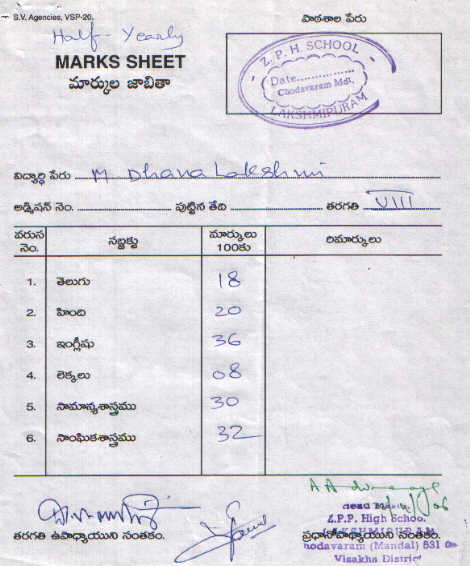 S.V. Agencies, VSP-20.
పాఠశాల పేరు
Half-Yearly
MARKS SHEET
మార్కుల జాబితా
Z. P. H SCHOOL
Date................
Chodavaram Mdl,
LAKSHMIPURAM
విద్యార్థి పేరు M Dhana Lakshmi
అడ్మిషన్ నెం. పుట్టిన తేది తరగతి VIII
వరుస నెం. సబ్జక్టు మార్కులు 100కు రిమార్కులు
1. తెలుగు 18
2. హింది 20
3. ఇంగ్లీషు 36
4. లెక్కలు 08
5. సామాన్యశాస్త్రము 30
6. సాంఘికశాస్త్రము 32
Z.P.P. High School
LAKSHMIPURAM
తరగతి ఉపాధ్యాయుని సంతకం. ప్రధానోపాధ్యాయుని సంతకం.
hodavaram (Mandal) 531 0
Visakha District